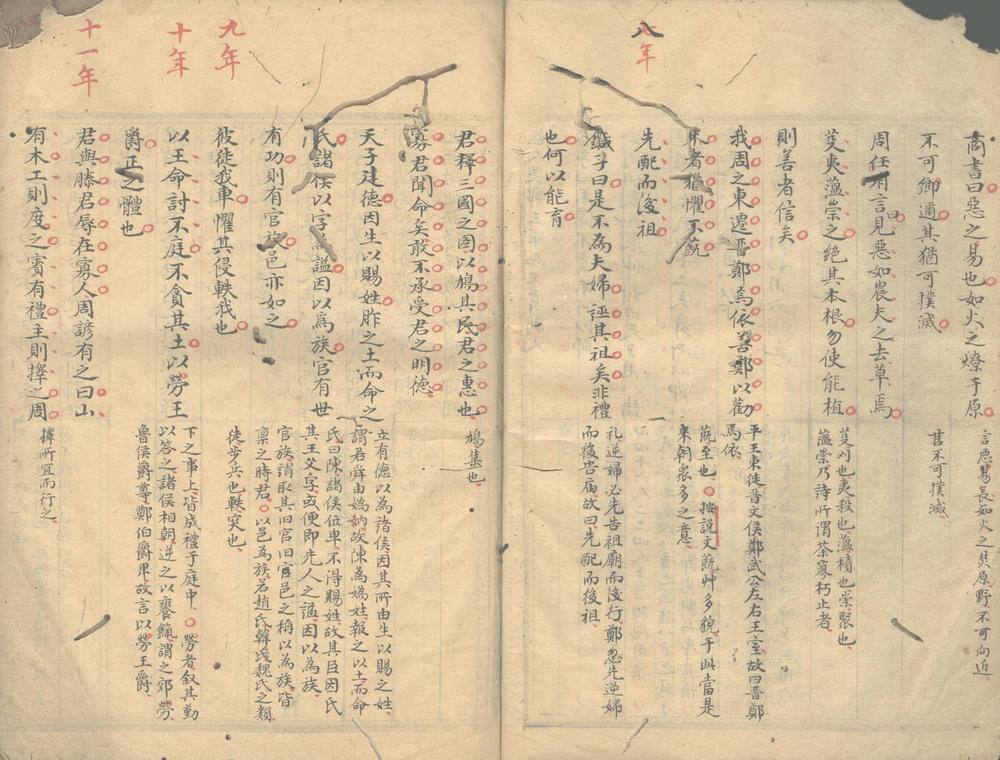 商書曰惡之易也如火之燎于原
言惡易長如火之焚原野不可向近
不可鄉邇其猶可撲滅
言不可撲滅
周任有言曰見惡如農夫之去草焉
芟夷薀崇之絕其本根勿使能植
芟刈也夷殺也薀積也崇聚也
薀崇乃詩所謂荼蓼朽止者
則善者信矣
八年
我周之東遷晋鄭焉依善鄭以勸
平王東徙晋文侯鄭武公左右王室故曰晋鄭
焉依
來者猶懼不蔇
蔇至也按說文蔇艸多貌于此當是
來朝衆多之意
先配而後祖
鍼子曰是不為夫婦誣其祖矣非禮
礼逆婦必先告祖廟而後行鄭忽先逆婦
而後告庙故曰先配而後祖
也何以能育
君釋三國之圖以鳩其民君之惠也
鳩集也
寡君聞命矣敢不承受君之明德
天子建德因生以賜姓胙之土而命之
立有德以為諸侯因其所由生以賜之姓
謂若舜由媯汭故陳為媯姓報之以土而命
氏諸侯以字為謚因以為族官有世
氏曰陳諸侯位卑不得賜姓故其臣因氏
其王父字或便即先人之謚因以為族
有功則有官族邑亦如之
官族謂取其旧官旧邑之稱以為族皆
稟之時君以邑為族若趙氏韓氏魏氏之類
九年
彼徒我車懼其侵軼我也
徒步兵也軼突也
十年
以王命討不庭不貪其土以勞王
下之事上皆成禮于庭中勞者叙其勤
以答之諸侯相朝逆之以饔餼謂之郊勞
爵正之體也
魯侯爵尊鄭伯爵卑故言以勞王爵
十一年
君與滕君辱在寡人周諺有之曰山
有木工則度之賓有禮主則擇之周
擇所宜而行之